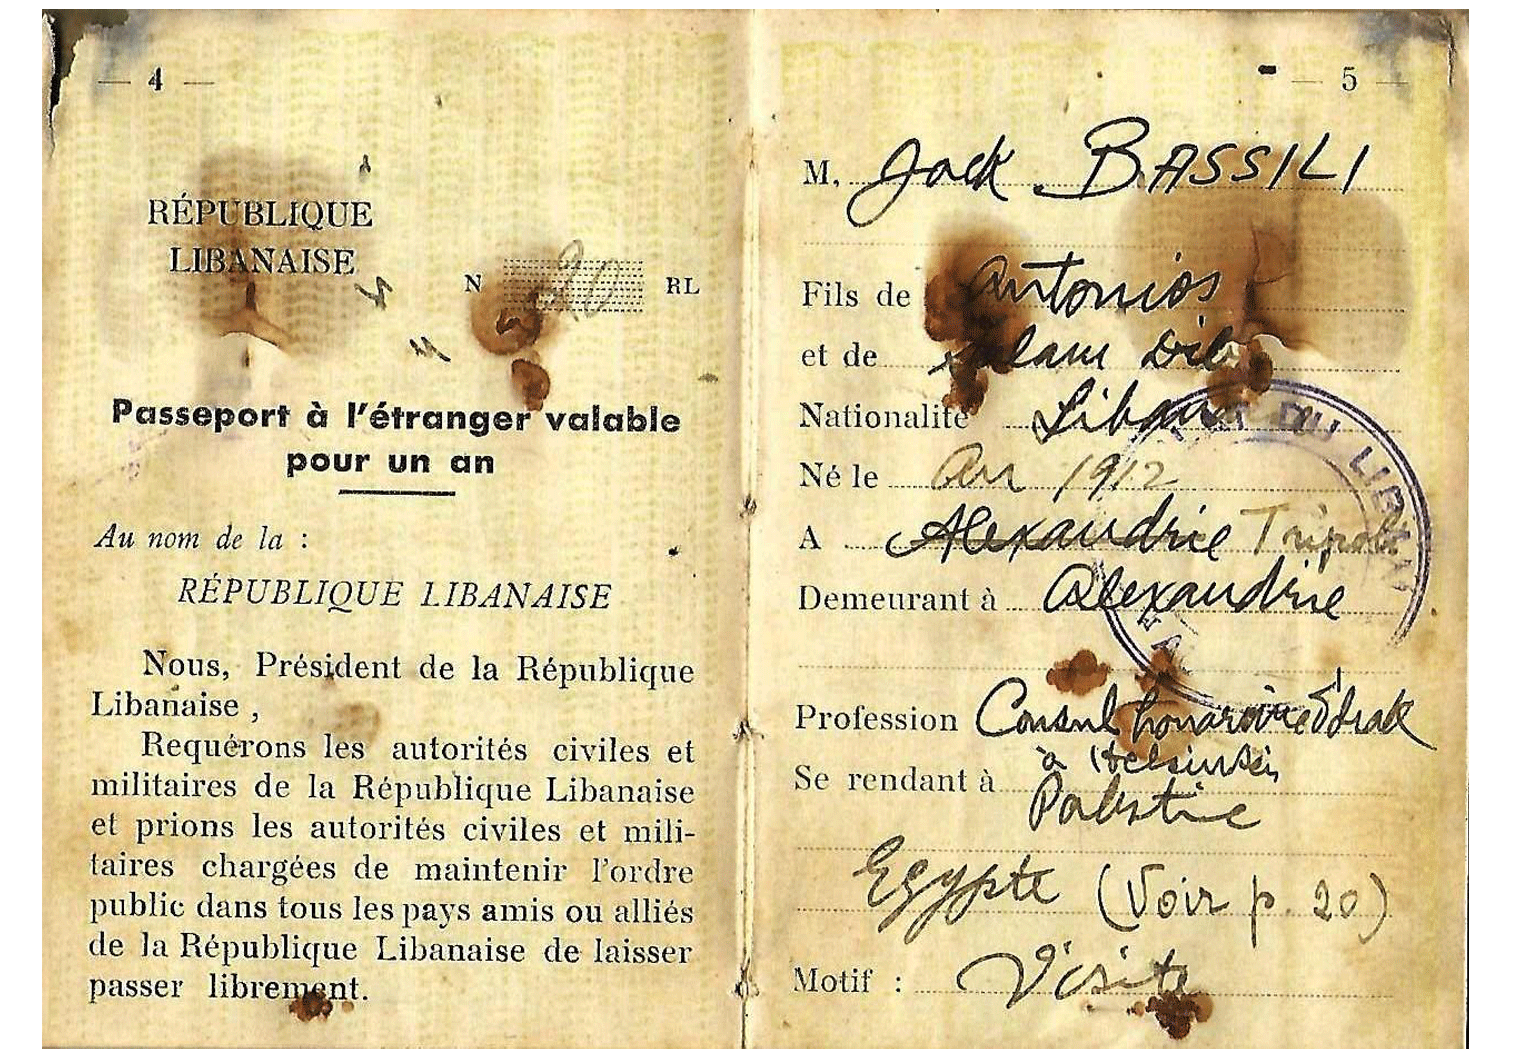 — 4 —
RÉPUBLIQUE
LIBANAISE
N 20 RL
Passeport à l'étranger valable
pour un an
Au nom de la :
RÉPUBLIQUE LIBANAISE
Nous, Président de la République
Libanaise ,
Requérons les autorités civiles et
militaires de la République Libanaise
et prions les autorités civiles et mili-
taires chargées de maintenir l'ordre
public dans tous les pays amis ou alliés
de la République Libanaise de laisser
passer librement.
— 5 —
M, Jack BASSILI
Fils de Antonios
et de
Nationalité
Né le An 1912
A Alexandrie Tripoli
Demeurant à Alexandrie
Profession Consul honoraire
à Helsinki
Se rendant à Palestie
Egypte (Voir p. 20)
Motif : Visite
DU LIBAN